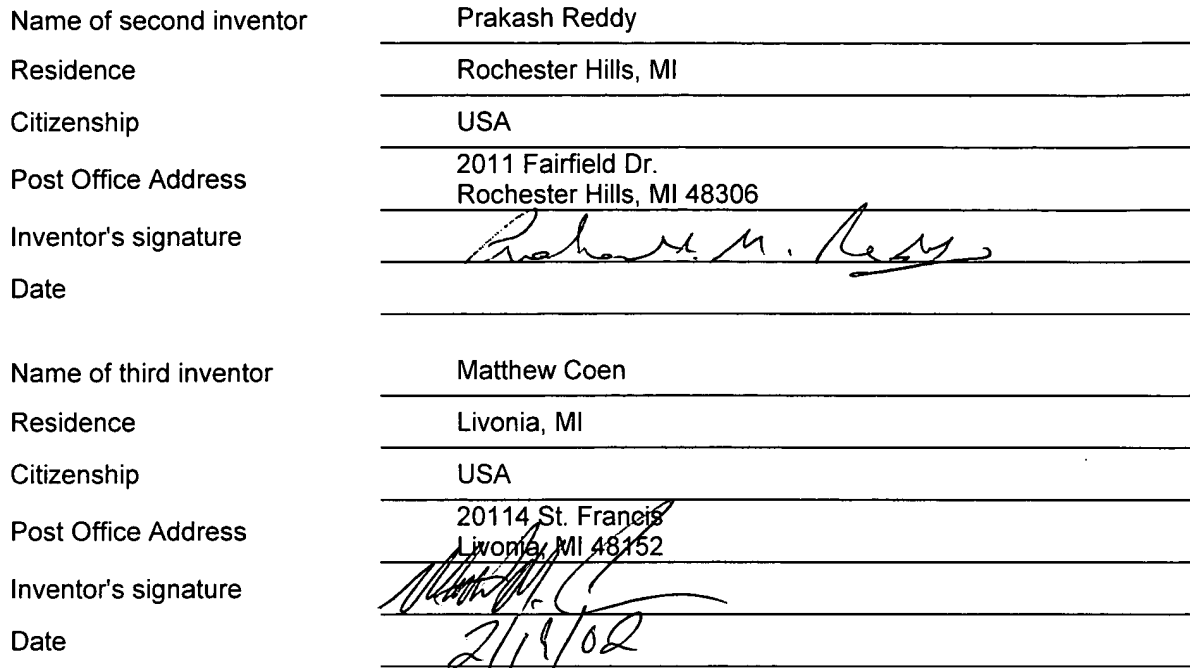 Name of second inventor Prakash Reddy
Residence Rochester Hills, MI
Citizenship USA
Post Office Address 2011 Fairfield Dr.
Rochester Hills, MI 48306
Inventor's signature Prakash M. Reddy
Date
Name of third inventor Matthew Coen
Residence Livonia, MI
Citizenship USA
Post Office Address 20114 St. Francis
Livonia, MI 48152
Inventor's signature
Date 2/19/02